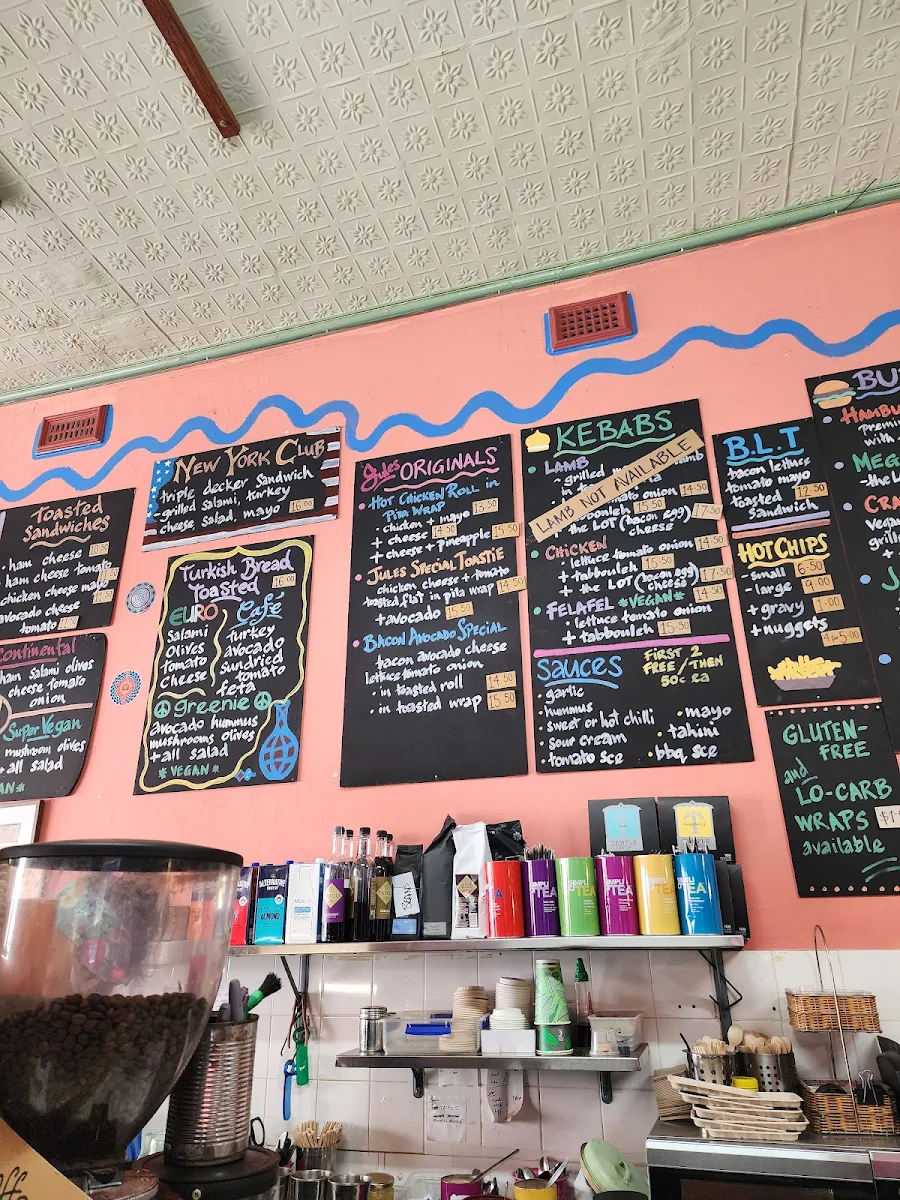 Toasted
Sandwiches
• ham cheese
ham cheese tomato
chicken cheese mayo
avocado cheese
tomato
Continental
ham salami olives
cheese tomato
onion
Super Vegan
mushroom olives
+ all salad
NEW YORK CLUB
triple decker sandwich
grilled salami, turkey
cheese, salad, mayo 16.00
Turkish Bread
Toasted 16.00
EURO
Salami
Olives
Tomato
Cheese
Café
turkey
avocado
sundried
tomato
feta
greenie
avocado hummus
mushrooms olives
+ all salad
* VEGAN *
Jules ORIGINALS
• HOT CHICKEN ROLL in
PITA WRAP 13.50
• chicken + mayo
+ cheese 14.50
+ cheese + pineapple 15.50
• JULES SPECIAL TOASTIE
chicken cheese + tomato
toasted flat in pita wrap 14.50
+ avocado 15.50
• BACON AVOCADO SPECIAL
bacon avocado cheese
lettuce tomato onion
• in toasted roll 14.50
• in toasted wrap 15.50
KEBABS
LAMB
• grilled lamb
LAMB NOT AVAILABLE
tomato onion 14.50
+ tabbouleh 15.50
+ the LOT (bacon egg) 17.50
cheese
CHICKEN
• lettuce tomato onion 14.50
+ tabbouleh 15.50
+ the LOT (bacon egg) 17.50
cheese
FELAFEL *VEGAN* 14.50
• lettuce tomato onion
+ tabbouleh 15.50
SAUCES
FIRST 2
FREE / THEN
50c ea
• garlic
• hummus
• sweet or hot chilli
• sour cream
• tomato sce
• mayo
• tahini
• bbq sce
B.L.T
bacon lettuce
tomato mayo
toasted 12.50
sandwich
HOT CHIPS
- small 6.50
- large 9.00
+ gravy 1.00
+ nuggets
4 for 5.00
BU
HAMBU
premi
with
MEG
-the L
CRA
vegan
grille
+
J
GLUTEN-
FREE
and
LO-CARB
WRAPS
available
ALTERNATIVE
ALMOND
SIMPLI
TEA
SIMPLI
TEA
SIMPLI
TEA
SIMPLI
TEA
SIMPLI
TEA